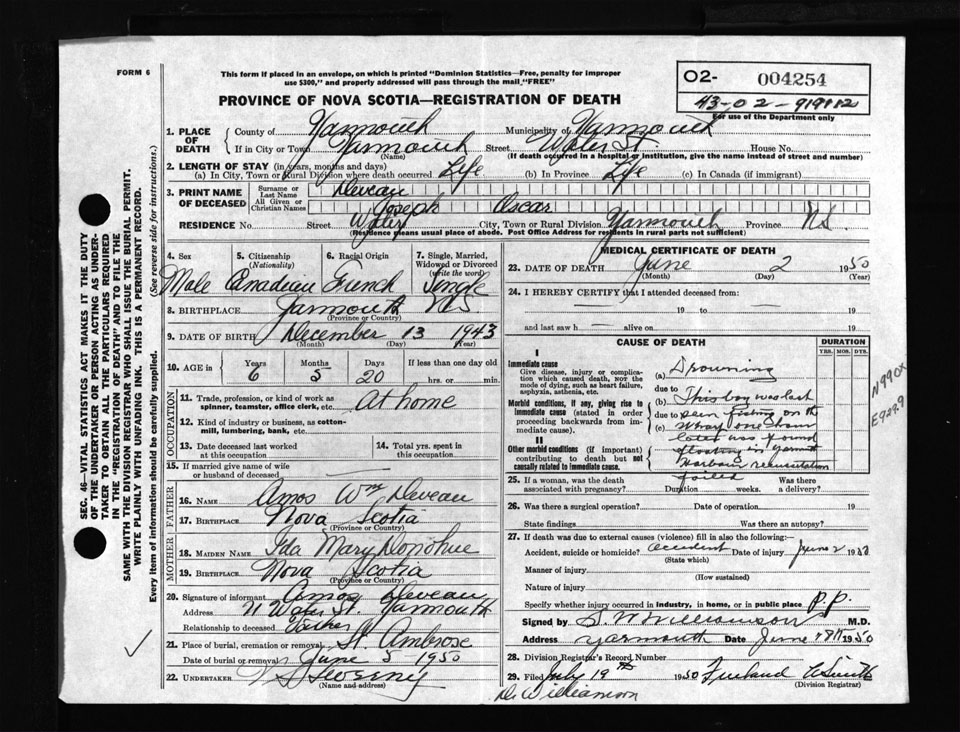 FORM 6
This form if placed in an envelope, on which is printed "Dominion Statistics—Free, penalty for improper
use $300," and properly addressed will pass through the mail "FREE"
PROVINCE OF NOVA SCOTIA—REGISTRATION OF DEATH
O2- 004254
43-02-919112
For use of the Department only
SEC. 46—VITAL STATISTICS ACT MAKES IT THE DUTY
OF THE UNDERTAKER OR PERSON ACTING AS UNDER-
TAKER TO OBTAIN ALL THE PARTICULARS REQUIRED
IN THE "REGISTRATION OF DEATH" AND TO FILE THE
SAME WITH THE DIVISION REGISTRAR WHO SHALL ISSUE THE BURIAL PERMIT.
WRITE PLAINLY WITH UNFADING INK. THIS IS A PERMANENT RECORD.
Every item of information should be carefully supplied. (See reverse side for instructions.)
1. PLACE OF DEATH County of Yarmouth Municipality of Yarmouth
If in City or Town Yarmouth (Name) Street Water St. House No.
(If death occurred in a hospital or institution, give the name instead of street and number)
2. LENGTH OF STAY (in years, months and days)
(a) In City, Town or Rural Division where death occurred Life (b) In Province Life (c) In Canada (if immigrant)
3. PRINT NAME OF DECEASED Surname or Last Name Deveau
All Given or Christian Names Joseph Oscar
RESIDENCE No. Street Water City, Town or Rural Division Yarmouth Province N.S.
(Residence means usual place of abode. Post Office Address for residents in rural parts not sufficient)
4. Sex 5. Citizenship (Nationality) 6. Racial Origin 7. Single, Married, Widowed or Divorced (write the word)
Male Canadian French Single
8. BIRTHPLACE Yarmouth N.S.
(Province or Country)
9. DATE OF BIRTH December 13 1943
(Month) (Day) (Year)
10. AGE in Years Months Days If less than one day old
6 5 20 hrs. or min.
OCCUPATION
11. Trade, profession, or kind of work as spinner, teamster, office clerk, etc. At home
12. Kind of industry or business, as cotton-mill, lumbering, bank, etc.
13. Date deceased last worked at this occupation 14. Total yrs. spent in this occupation
15. If married give name of wife or husband of deceased
FATHER
16. NAME Amos Wm Deveau
17. BIRTHPLACE Nova Scotia
(Province or Country)
MOTHER
18. MAIDEN NAME Ida Mary Donohue
19. BIRTHPLACE Nova Scotia
(Province or Country)
20. Signature of informant Amos Deveau
Address 71 Water St. Yarmouth
Relationship to deceased Father
21. Place of burial, cremation or removal St. Ambrose
Date of burial or removal June 5 1950
22. UNDERTAKER Sweeny
(Name and address)
MEDICAL CERTIFICATE OF DEATH
23. DATE OF DEATH June 2 1950
(Month) (Day) (Year)
24. I HEREBY CERTIFY that I attended deceased from:
19 to 19
and last saw h alive on 19
CAUSE OF DEATH DURATION
YRS. MOS. DYS.
I
Immediate cause
Give disease, injury or complication which caused death, not the mode of dying, such as heart failure, asphyxia, asthenia, etc.
(a) Drowning
due to
Morbid conditions, if any, giving rise to immediate cause (stated in order proceeding backwards from immediate cause).
(b) This boy was last
due to seen fishing on the
(c) Wharf one hour
later was found
II
Other morbid conditions (if important) contributing to death but not causally related to immediate cause.
floating in Yarmouth
Harbour resuscitation
failed
N990X
E929.9
25. If a woman, was the death associated with pregnancy? Duration weeks. Was there a delivery?
26. Was there a surgical operation? Date of operation 19
State findings Was there an autopsy?
27. If death was due to external causes (violence) fill in also the following:—
Accident, suicide or homicide? accident Date of injury June 2 1950
(State which)
Manner of injury
(How sustained)
Nature of injury
Specify whether injury occurred in industry, in home, or in public place P.P.
Signed by S. W. Williamson M.D.
Address Yarmouth Date June 1950
28. Division Registrar's Record Number
29. Filed July 19th 1950
(Division Registrar)
Dr. Williamson